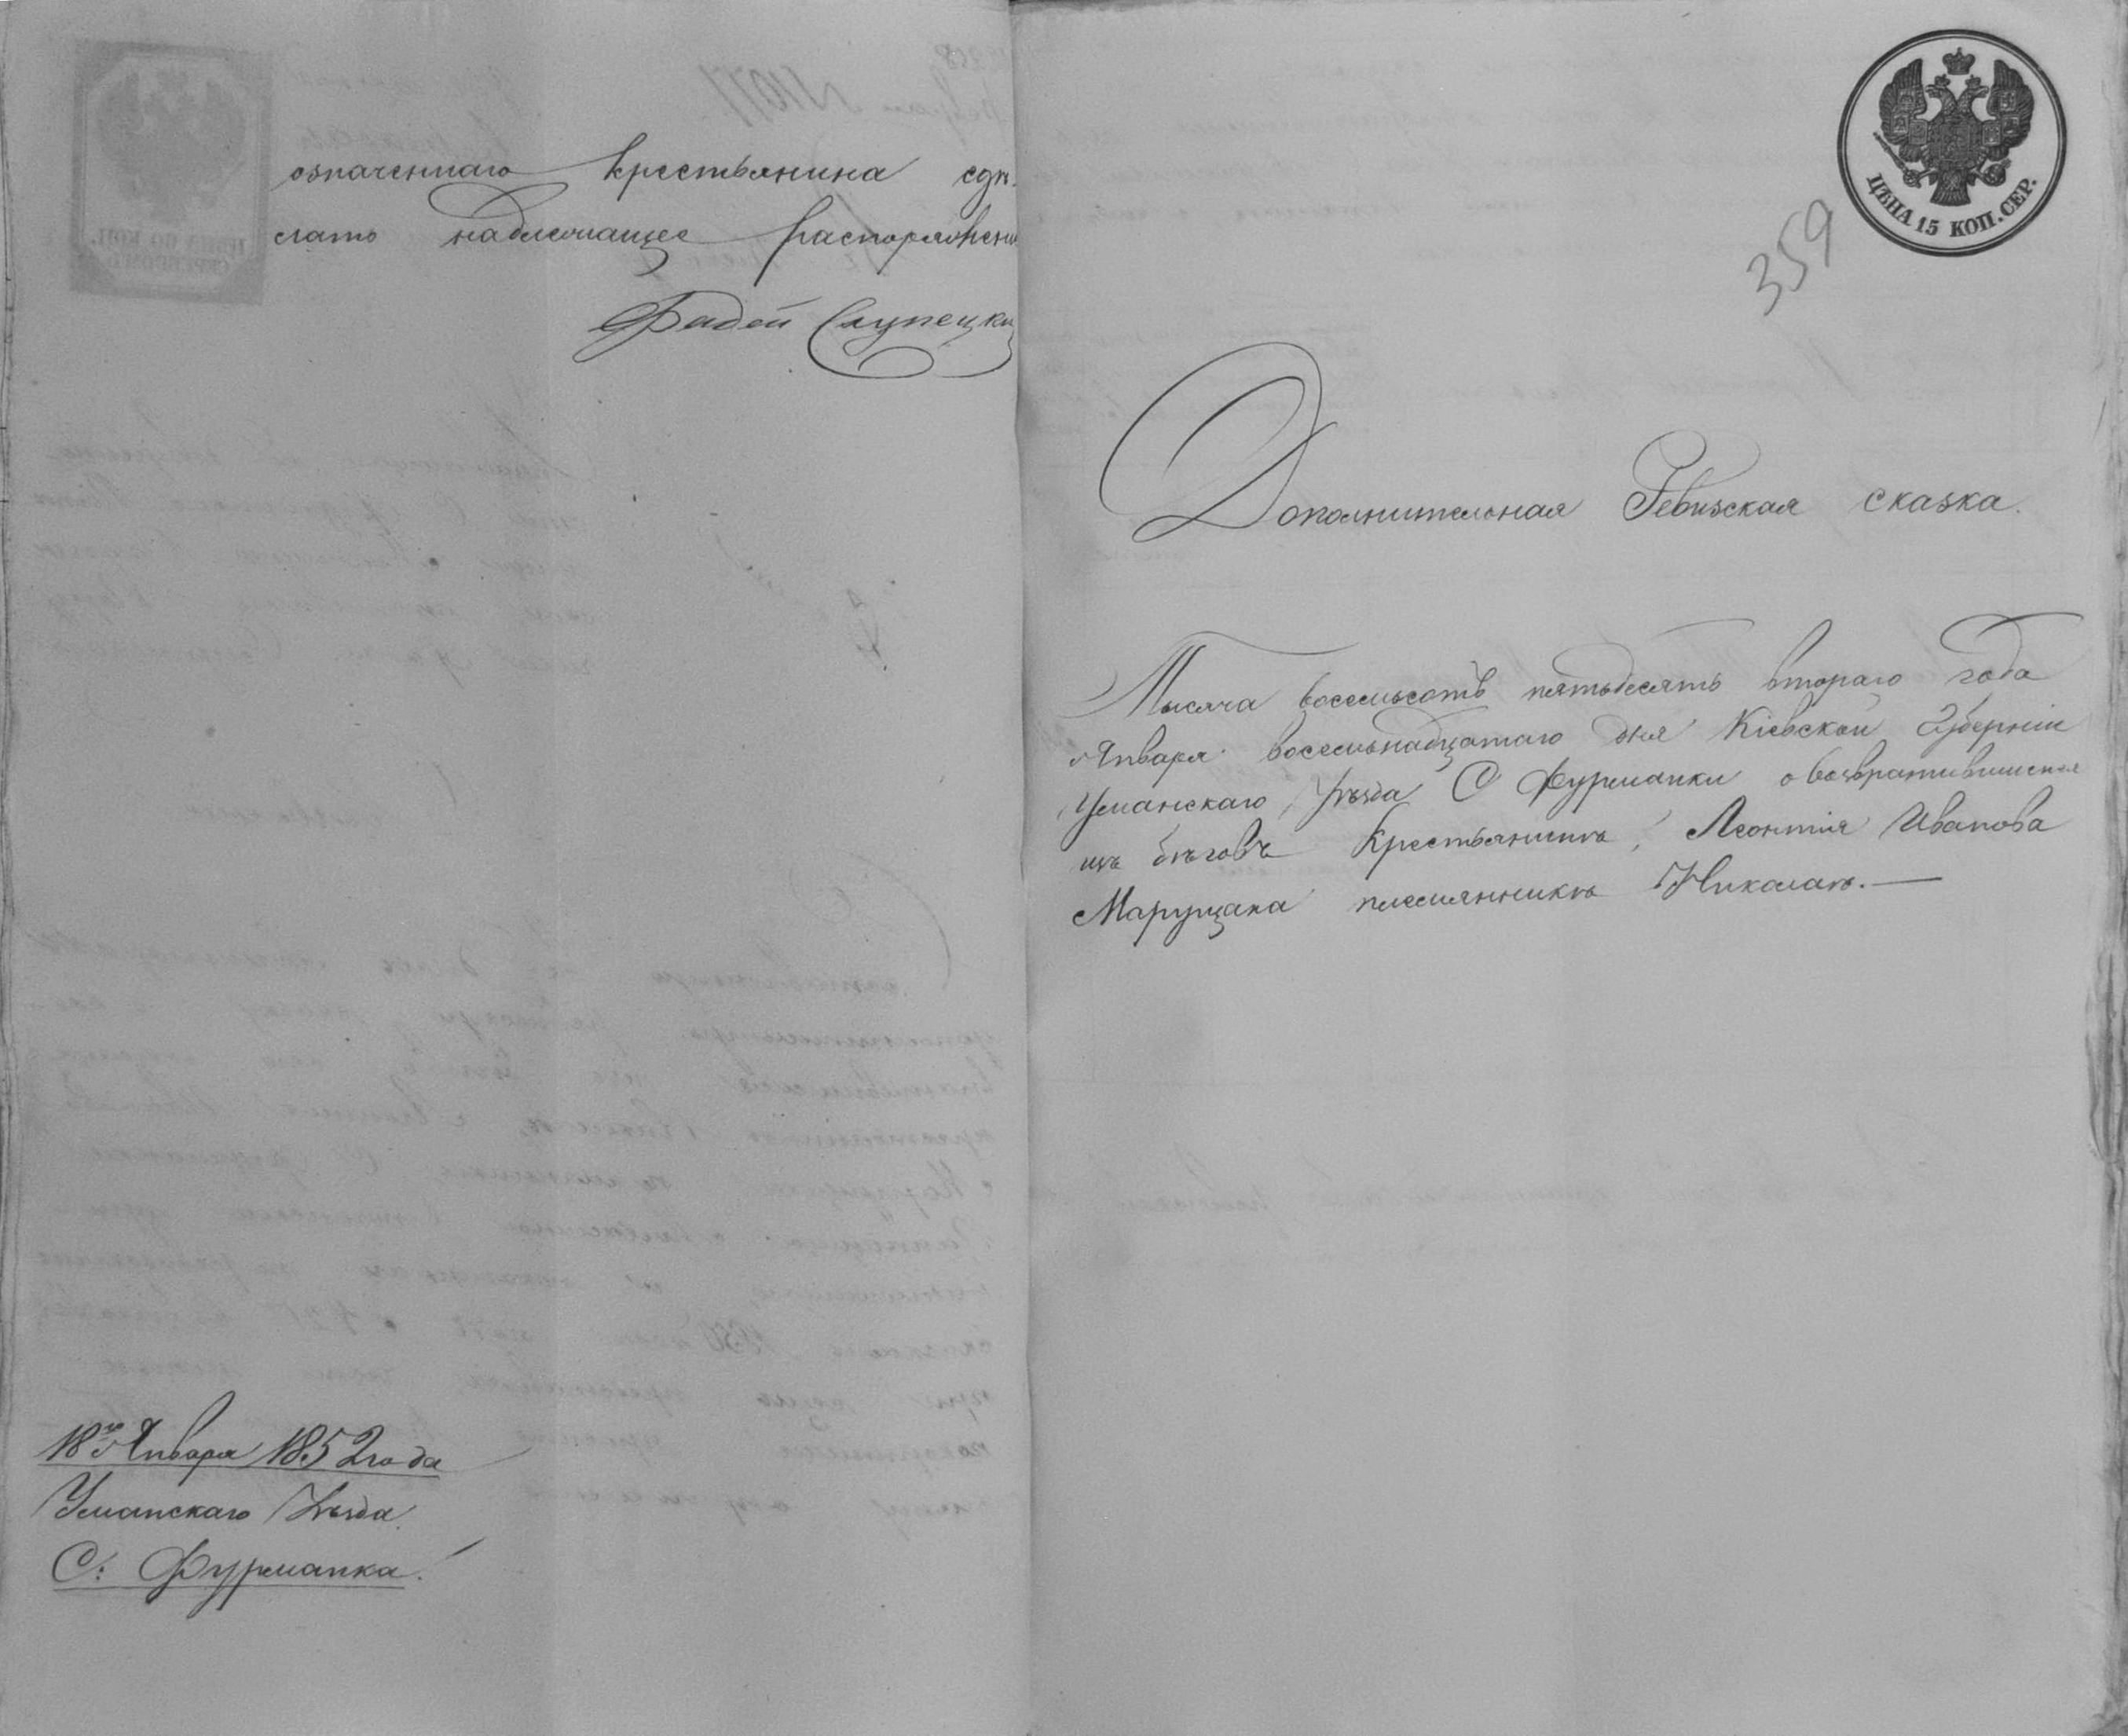 означеннаго крестьянина сдѣ-
лать надлежащее распоряжені
Фадей Слупецкій
18го Января 1852 года
Уманскаго Уѣзда
С: Фурманка.
ЦѢНА 15 КОП. СЕР.
359
Дополнительная Ревизская сказка.
Тысяча восемьсотъ пятьдесятъ втораго года
Января восемьнадцатаго дня Кіевской Губерніи
Уманскаго Уѣзда С Фурманки о возвратившемся
изъ бѣговъ крестьянинѣ, Леонтія Иванова
Марущака племянникѣ Николаѣ. —